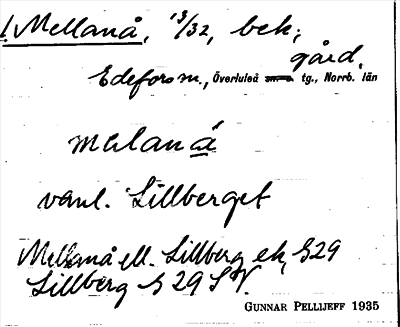 1 Mellanå, 13/32, bek.
gård,
Edefors sn., Överluleå tg., Norrb. län
mälanå
vanl. Lillberget
Mellanå ell. Lillberg ek, § 29
Lillberg § 29 SV.
GUNNAR PELLIJEFF 1935